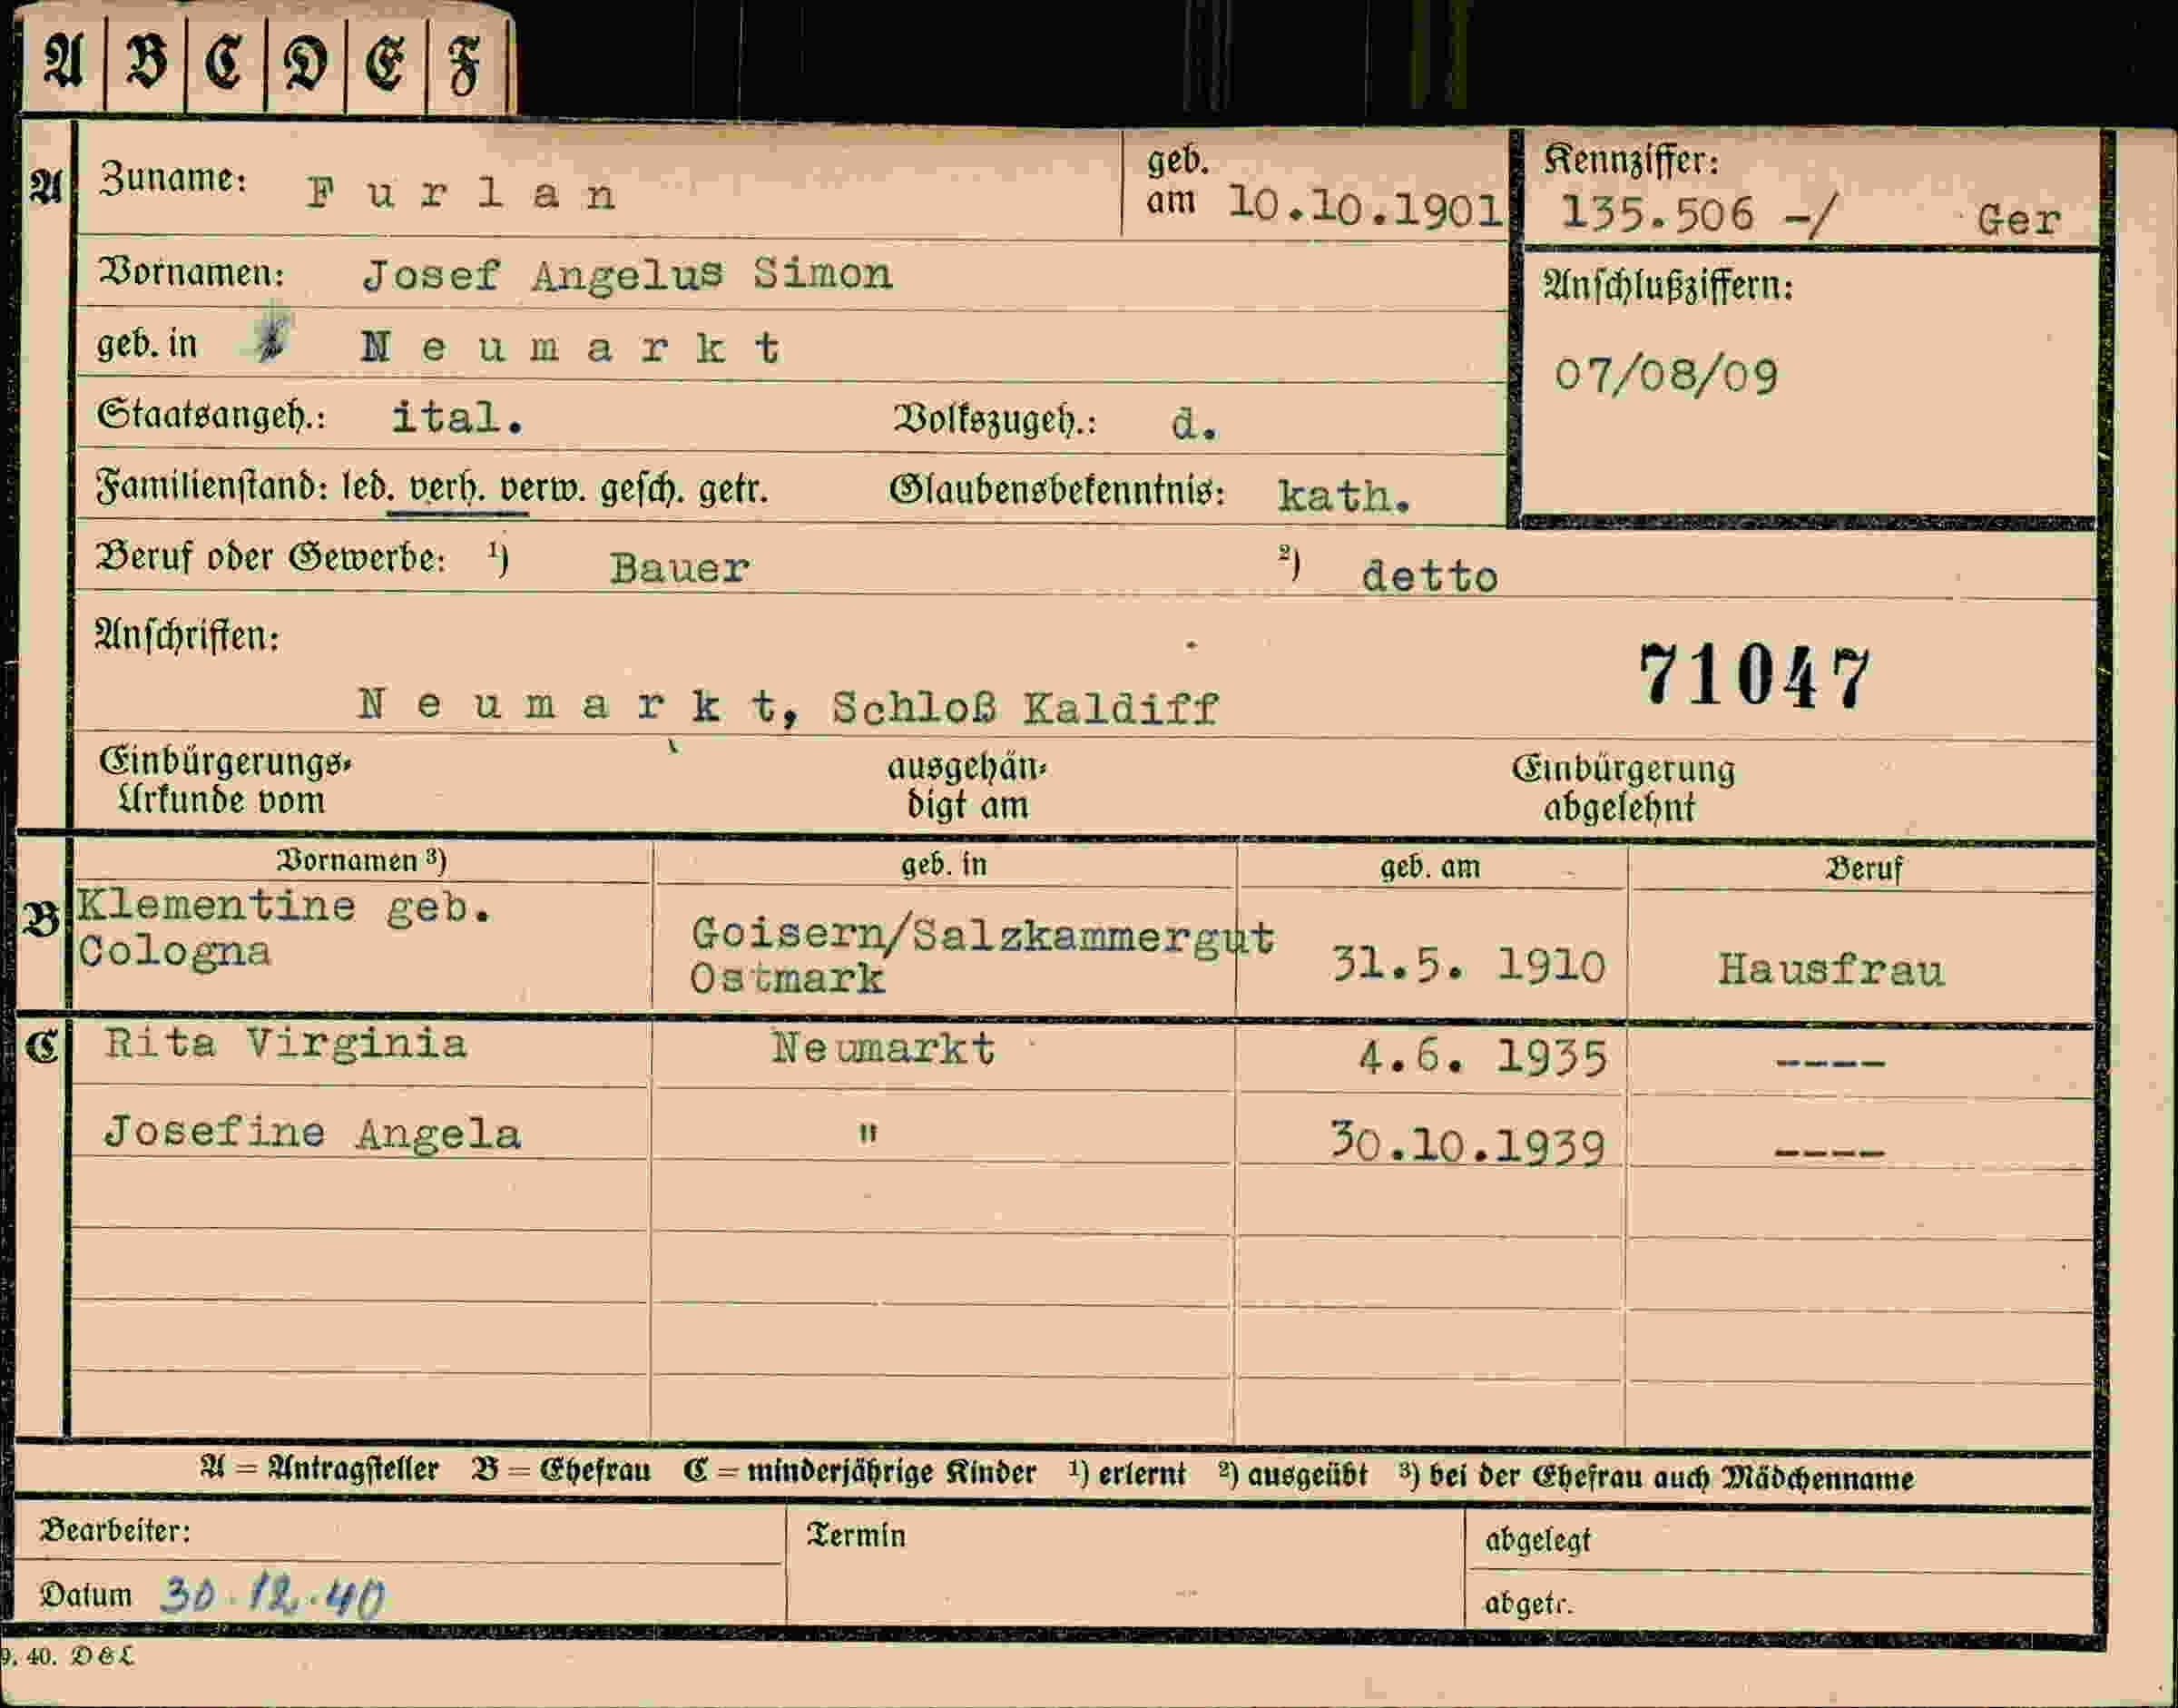 A B C D E F
A Zuname: Furlan geb. am 10.10.1901 Kennziffer: 135.506 -/ Ger
Vornamen: Josef Angelus Simon Anschlußziffern:
geb. in Neumarkt 07/08/09
Staatsangeh.: ital. Volkszugeh.: d.
Familienstand: led. verh. verw. gesch. getr. Glaubensbekenntnis: kath.
Beruf oder Gewerbe: ¹) Bauer ²) detto
Anschriften:
71047
Neumarkt, Schloß Kaldiff
Einbürgerungs- ausgehän- Einbürgerung
Urkunde vom digt am abgelehnt
Vornamen ³) geb. in geb. am Beruf
B Klementine geb. Goisern/Salzkammergut
Cologna Ostmark 31.5. 1910 Hausfrau
C Rita Virginia Neumarkt 4.6. 1935 ----
Josefine Angela " 30.10.1939 ----
A = Antragsteller B = Ehefrau C = minderjährige Kinder ¹) erlernt ²) ausgeübt ³) bei der Ehefrau auch Mädchenname
Bearbeiter: Termin abgelegt
Datum 30.12.40 abgetr.
9. 40. D&L